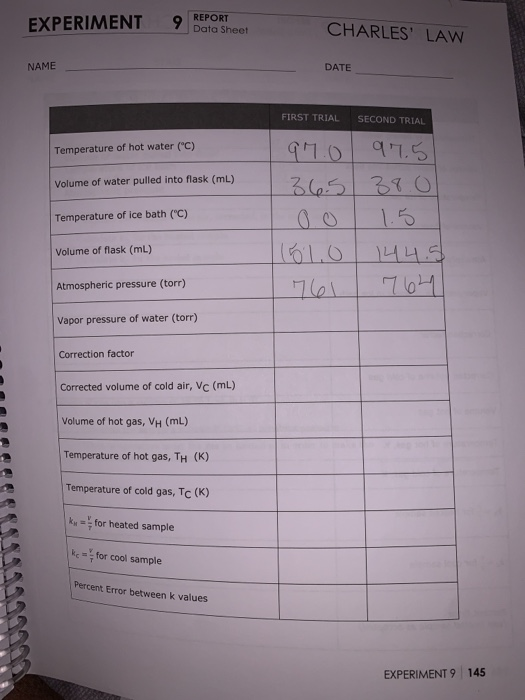 EXPERIMENT 9 REPORT
Data Sheet
CHARLES' LAW
NAME
DATE
FIRST TRIAL SECOND TRIAL
Temperature of hot water (°C) 97.0 97.5
Volume of water pulled into flask (mL) 36.5 38.0
Temperature of ice bath (°C) 0 0 1.5
Volume of flask (mL) 151.0 144.5
Atmospheric pressure (torr) 761 764
Vapor pressure of water (torr)
Correction factor
Corrected volume of cold air, VC (mL)
Volume of hot gas, VH (mL)
Temperature of hot gas, TH (K)
Temperature of cold gas, TC (K)
kH = V/T for heated sample
kC = V/T for cool sample
Percent Error between k values
EXPERIMENT 9 145